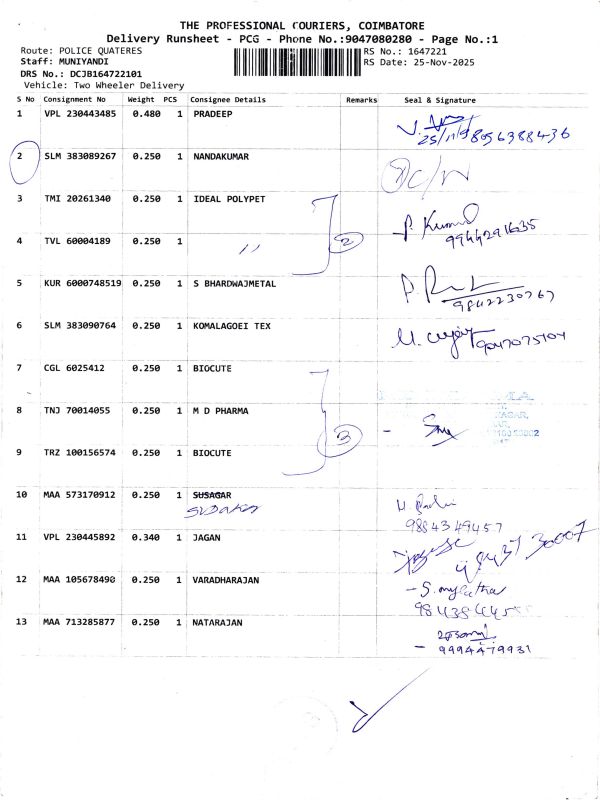 THE PROFESSIONAL COURIERS, COIMBATORE
Delivery Runsheet - PCG - Phone No.:9047080280 - Page No.:1
Route: POLICE QUATERES
RS No.: 1647221
Staff: MUNIYANDI
RS Date: 25-Nov-2025
DRS No.: DCJB164722101
Vehicle: Two Wheeler Delivery
S No Consignment No Weight PCS Consignee Details Remarks Seal & Signature
1 VPL 230443485 0.480 1 PRADEEP
8056388436
2 SLM 383089267 0.250 1 NANDAKUMAR
3 TMI 20261340 0.250 1 IDEAL POLYPET
P. Kumar
4 TVL 60004189 0.250 1 " 2
9944291635
5 KUR 6000748519 0.250 1 S BHARDWAJMETAL
9842230767
6 SLM 383090764 0.250 1 KOMALAGOEI TEX
9047075104
7 CGL 6025412 0.250 1 BIOCUTE
8 TNJ 70014055 0.250 1 M D PHARMA
3
9 TRZ 100156574 0.250 1 BIOCUTE
10 MAA 573170912 0.250 1 SUSAGAR
9884349457
11 VPL 230445892 0.340 1 JAGAN
12 MAA 105678490 0.250 1 VARADHARAJAN
13 MAA 713285877 0.250 1 NATARAJAN
9994479931